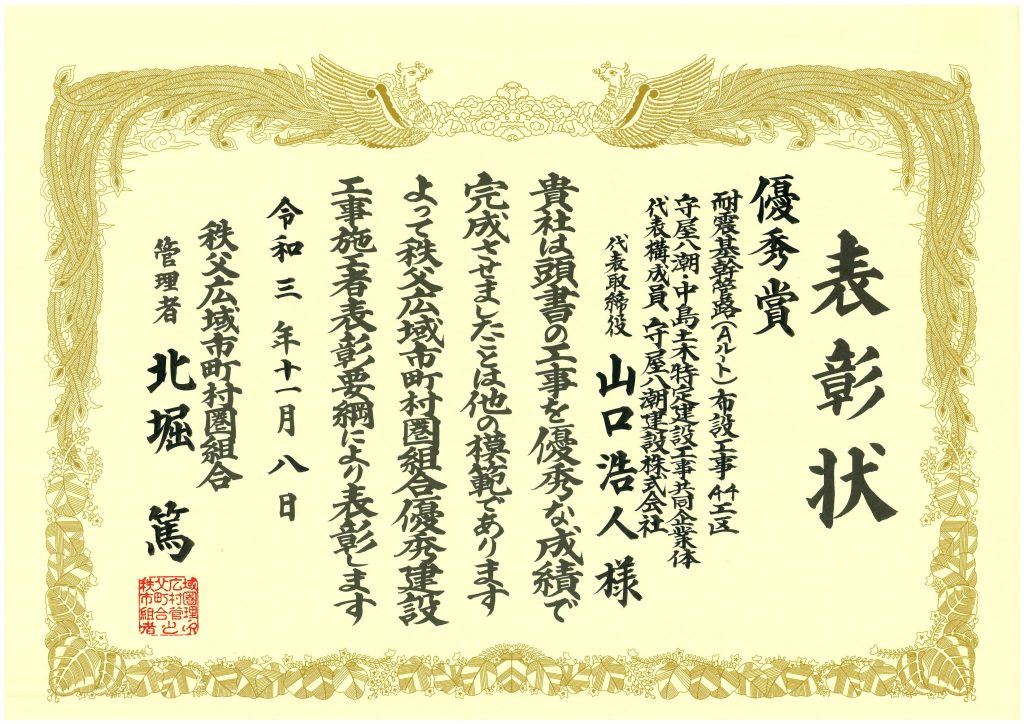 表彰状
優秀賞
耐震基幹管路(Aルート)布設工事A4工区
守屋八潮・中島土木特定建設工事共同企業体
代表構成員 守屋八潮建設株式会社
代表取締役 山口浩人様
貴社は頭書の工事を優秀な成績で
完成させましたことは他の模範であります
よって秩父広域市町村圏組合優秀建設
工事施工者表彰要綱により表彰します
令和三年十一月八日
秩父広域市町村圏組合
管理者 北堀篤